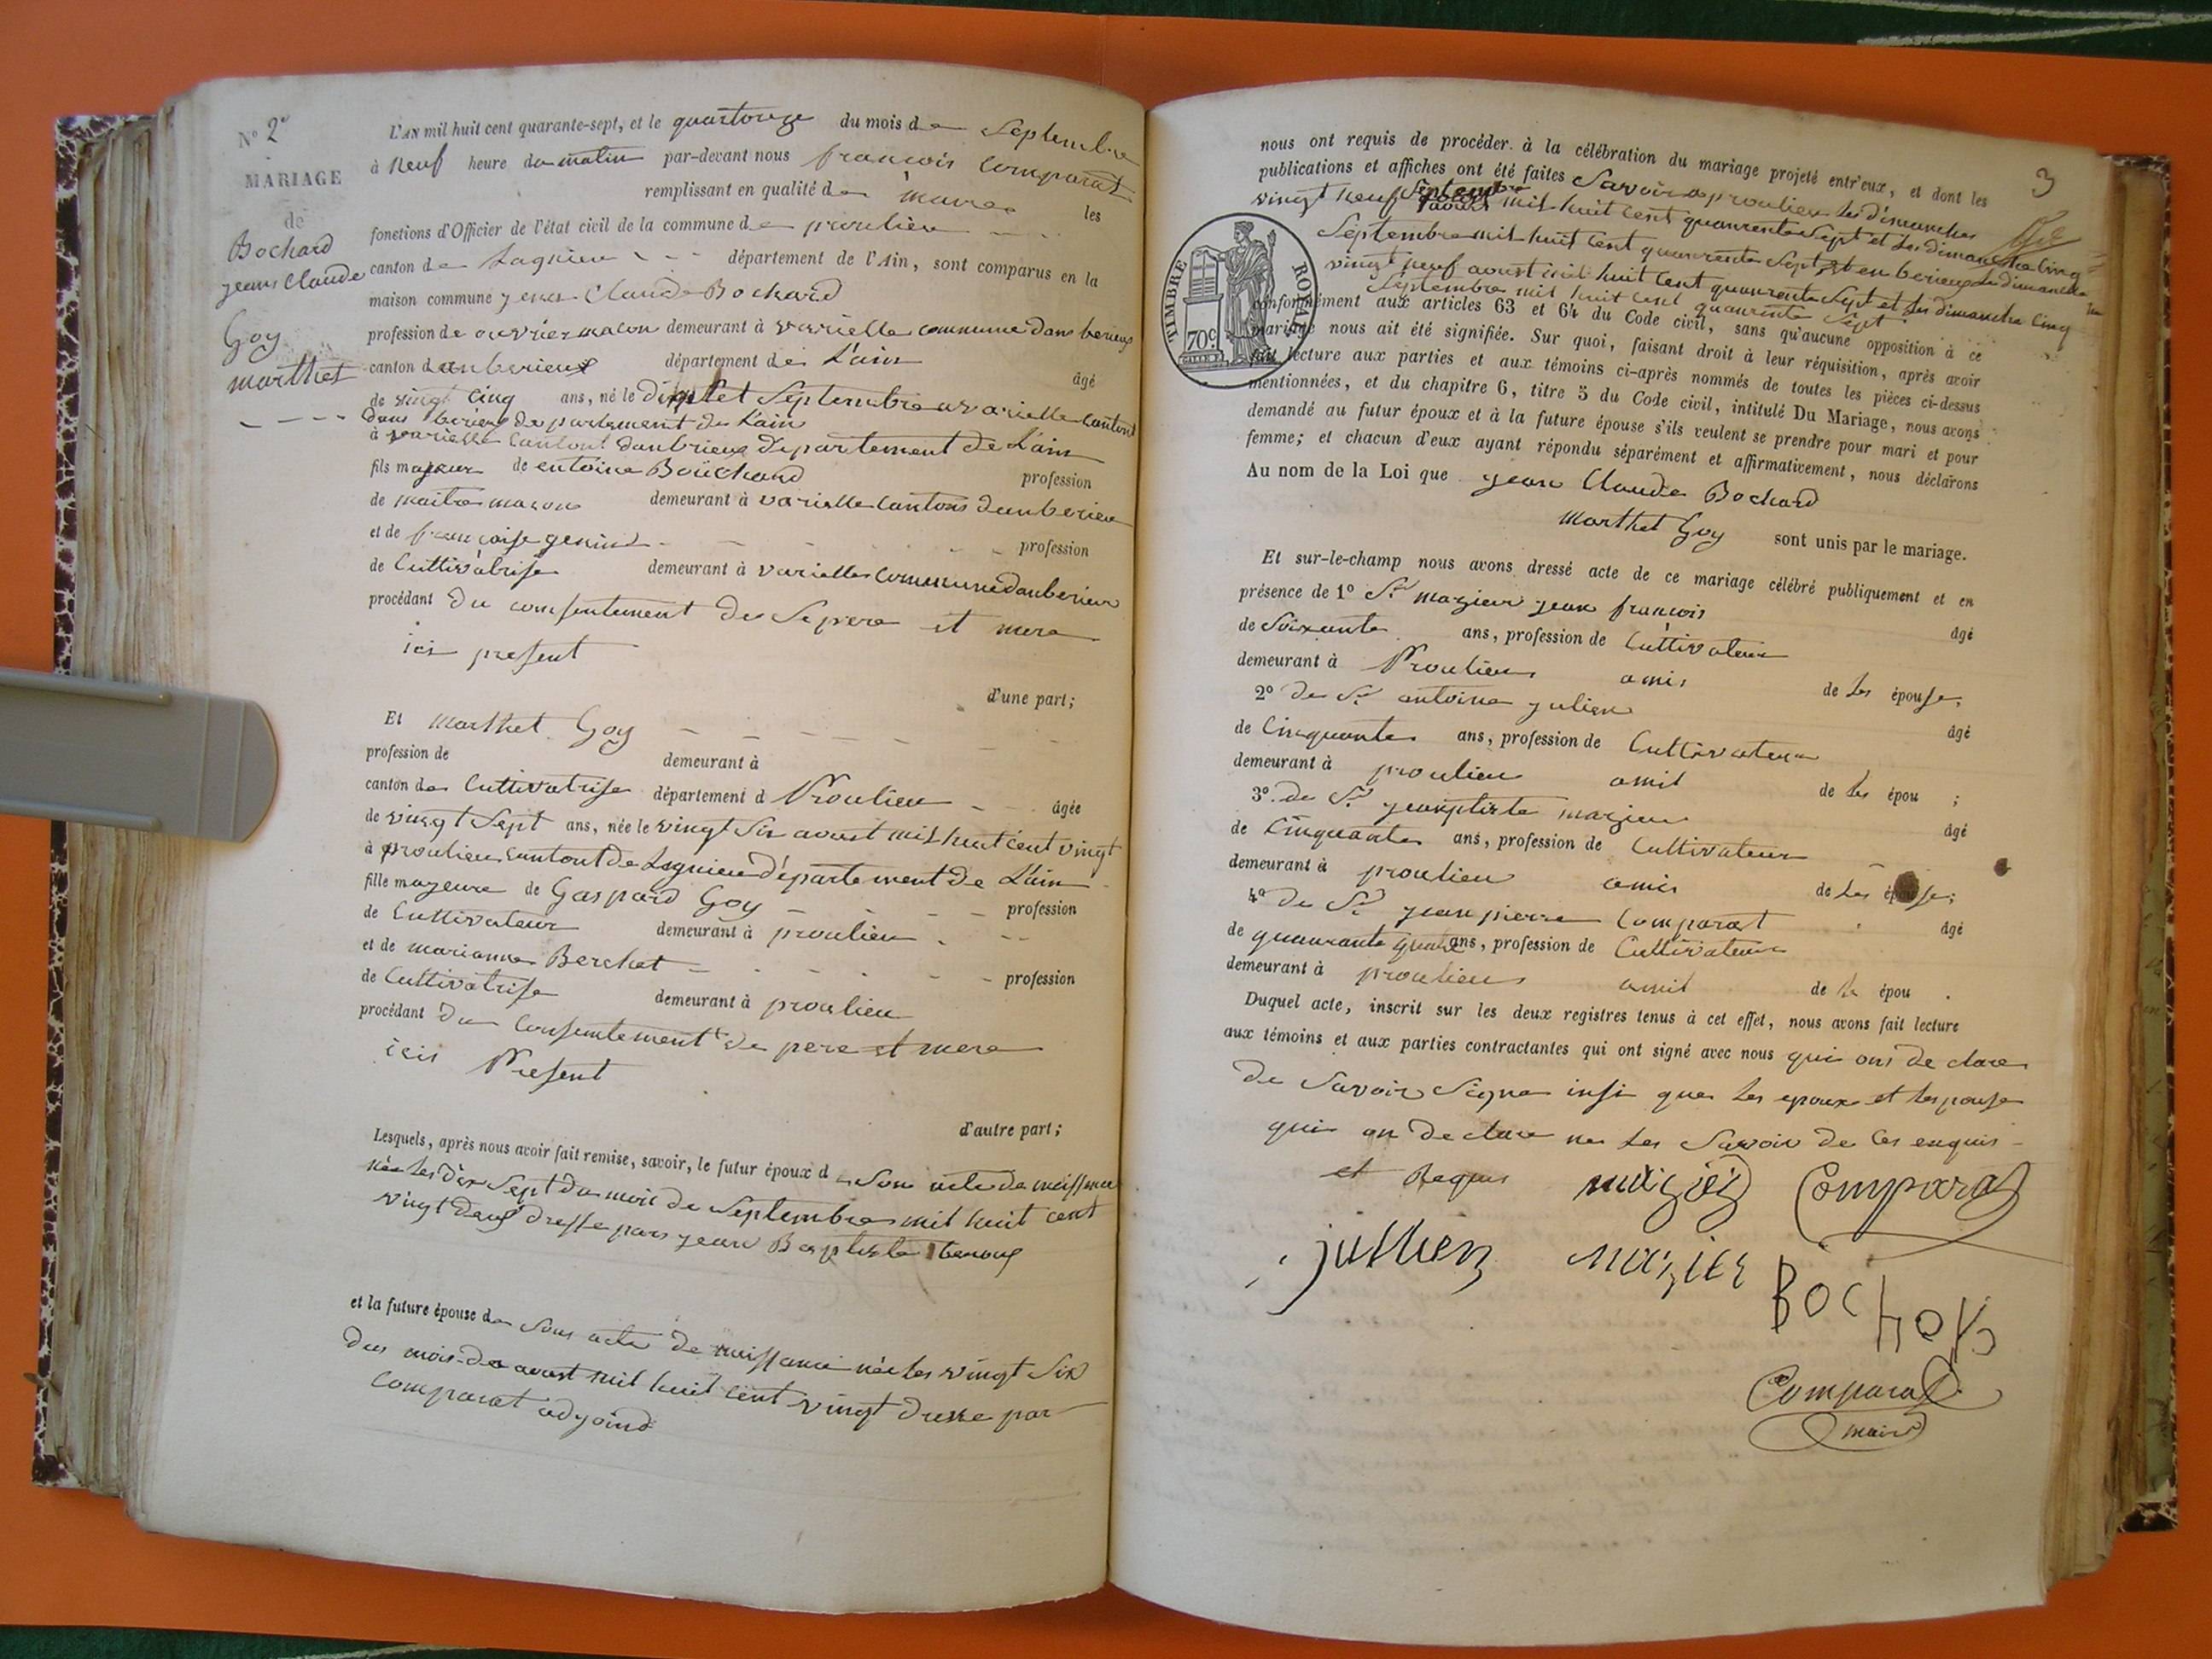 N° 2e
MARIAGE
de
Bochard
jean Claude
Goy
marthet
L'AN mil huit cent quarante-sept, et le quartorze du mois de Septembre
à neuf heure du matin par-devant nous francois comparat
remplissant en qualité de maire les
fonctions d'Officier de l'état civil de la commune de proulieu
canton de Lagnieu département de l'Ain, sont comparus en la
maison commune jean Claude Bochard
profession de ouvrier macon demeurant à varielle commune dans berieux
canton danberieux département de L'ain
âgé
de vingt cinq ans, né le dix Set Septembre a varielle Canton
dans berieux departement de L'ain
à varielle Canton danbrieux département de L'ain
fils majeur de entoine Bouchard profession
de maitre macon demeurant à varielle Cantons danberieu
et de francoise genin profession
de Cultivatrise demeurant à varielle commune danberieu
procédant du consentement de Se pere et mere
ici present
d'une part;
Et marthet Goy
profession de demeurant à
canton de Cultivatrise département d Proulieu âgée
de vingt Sept ans, née le vingt Six aoust mil huit cent vingt
à proulieu Cantont de Lagnieu département de L'ain
fille majeure de Gaspard Goy profession
de Cultivateur demeurant à proulieu
et de marianne Berchet profession
de Cultivatrise demeurant à proulieu
procédant du Consentement de pere et mere
icis Present
d'autre part;
Lesquels, après nous avoir fait remise, savoir, le futur époux de Son acte de naissance
née les dix Sept du mois de Septembre mil huit cent
vingt deux dresse par jean Baptiste
et la future épouse de Son acte de naissance née les vingt Six
du mois de aoust mil huit cent vingt dresse par
comparat adjoind
3
nous ont requis de procéder à la célébration du mariage projeté entr'eux, et dont les
publications et affiches ont été faites Savoir a proulieu les dimanches
vingt neuf mil huit cent quaurente Sept et les dimanche Cinq
Septembre mil huit cent quaurente Sept et en berieux les dimanche
vingt neuf aoust mil huit cent quaurente Sept et les dimanche Cinq
Septembre mil huit cent quaurente Sept
TIMBRE ROYAL
70c
conformément aux articles 63 et 64 du Code civil, sans qu'aucune opposition à ce
mariage nous ait été signifiée. Sur quoi, faisant droit à leur réquisition, après avoir
fait lecture aux parties et aux témoins ci-après nommés de toutes les pièces ci-dessus
mentionnées, et du chapitre 6, titre 5 du Code civil, intitulé Du Mariage, nous avons
demandé au futur époux et à la future épouse s'ils veulent se prendre pour mari et pour
femme; et chacun d'eux ayant répondu séparément et affirmativement, nous déclarons
Au nom de la Loi que jean Claude Bochard
Marthet Goy sont unis par le mariage.
Et sur-le-champ nous avons dressé acte de ce mariage célébré publiquement et en
présence de 1° Sr mazieu jean francois
âgé
de Soixante ans, profession de Cultivateur
demeurant à Proulieu amis de les épouse;
2° de Sr antoine julien
âgé
de Cinquante ans, profession de Cultivateur
demeurant à proulieu amit de les épou ;
3° de Sr jeanptiste mazieu
âgé
de Cinquante ans, profession de Cultivateur
demeurant à proulieu amis de les épouse;
4° de Sr jean pierre Comparat
âgé
de quaurante quatre ans, profession de Cultivateur
demeurant à proulieu amit de la épou .
Duquel acte, inscrit sur les deux registres tenus à cet effet, nous avons fait lecture
aux témoins et aux parties contractantes qui ont signé avec nous qui ons de clare
de Savoir Signe insi que les epoux et lespouse
qui on de clare ne les Savoir de Ces enquis
et Requis maziez Comparat
jullien mazier BOCHOR
Comparat
maire